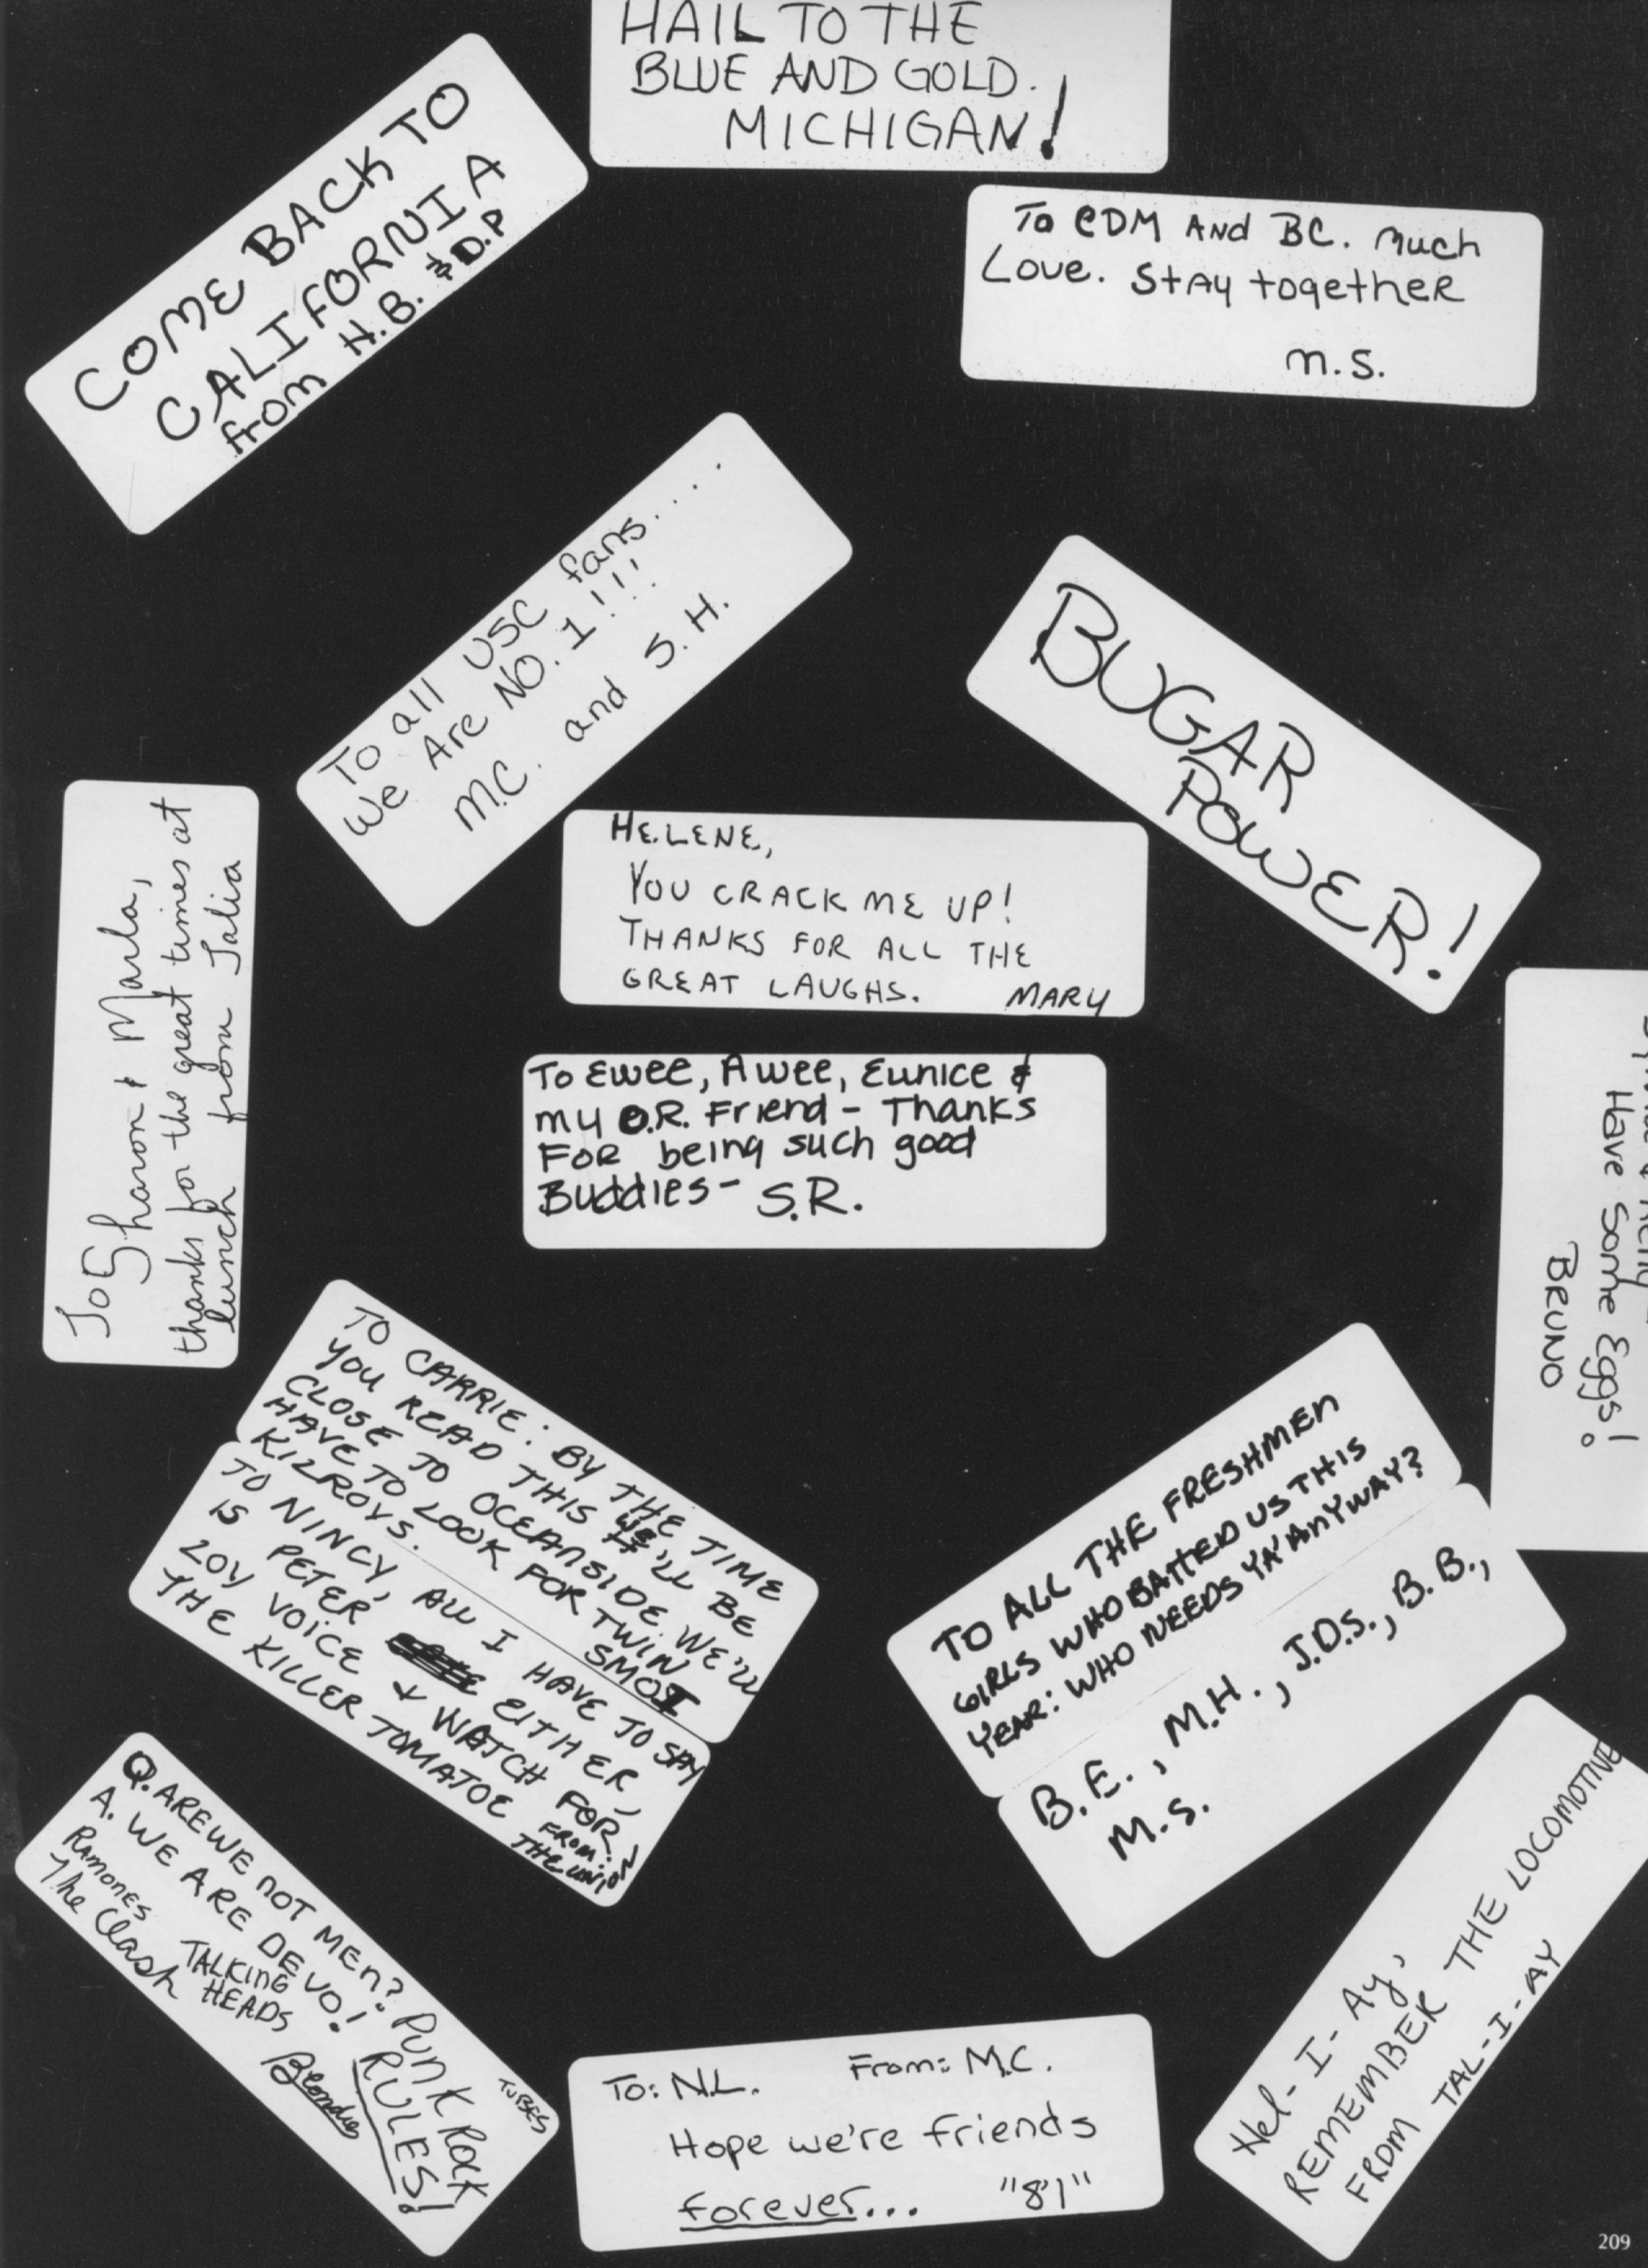 HAIL TO THE
BLUE AND GOLD.
MICHIGAN!
COME BACK TO
CALIFORNIA
from H.B. & D.P
To CDM AND BC. Much
Love. Stay together
M.S.
To all USC fans....
We Are NO. 1!!!
M.C. and S.H.
BUGAR
POWER!
To Sharon & Marla,
thanks for the great times at
lunch from Talia
HELENE,
YOU CRACK ME UP!
THANKS FOR ALL THE
GREAT LAUGHS. MARY
To Ewee, Awee, Eunice &
my O.R. Friend - Thanks
For being such good
Buddies - S.R.
Have Some Eggs!
BRUNO
TO CARRIE: BY THE TIME
YOU READ THIS WE'LL BE
CLOSE TO OCEANSIDE. WE'LL
HAVE TO LOOK FOR TWIN
KILROYS. SMOI
TO NINCY, ALL I HAVE TO SAY
IS PETER EITHER,
LOY VOICE & WATCH FOR
THE KILLER TOMATOE FROM:
THE UNION
TO ALL THE FRESHMEN
GIRLS WHO BATTED US THIS
YEAR: WHO NEEDS YA' ANYWAY?
B.E., M.H., J.D.S., B.B.,
M.S.
Q. ARE WE NOT MEN? PUNK ROCK
A. WE ARE DEVO! RULES!
Ramones TALKING
HEADS TUBES
The Clash Blondie
To: N.L. From: M.C.
Hope we're friends
forever... "81"
Hel-I-Ay,
REMEMBER THE LOCOMOTIVE
FROM TAL-I-AY
209